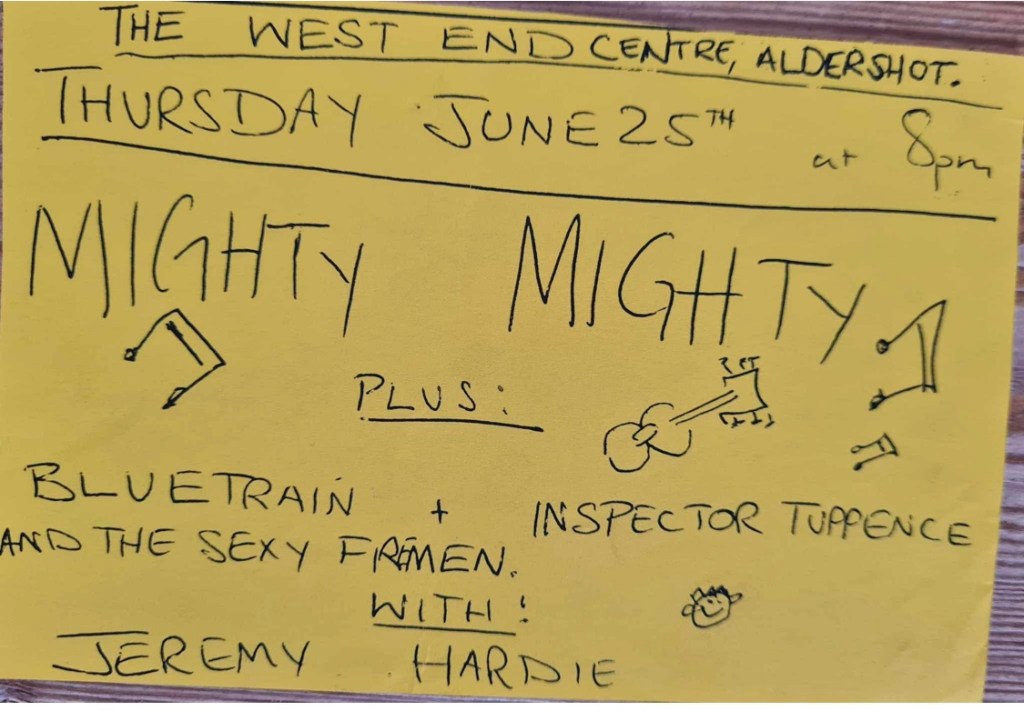 THE WEST END CENTRE, ALDERSHOT.
THURSDAY JUNE 25TH at 8pm
MIGHTY MIGHTY
PLUS:
BLUETRAIN + INSPECTOR TUPPENCE
AND THE SEXY FIREMEN.
WITH!
JEREMY HARDIE